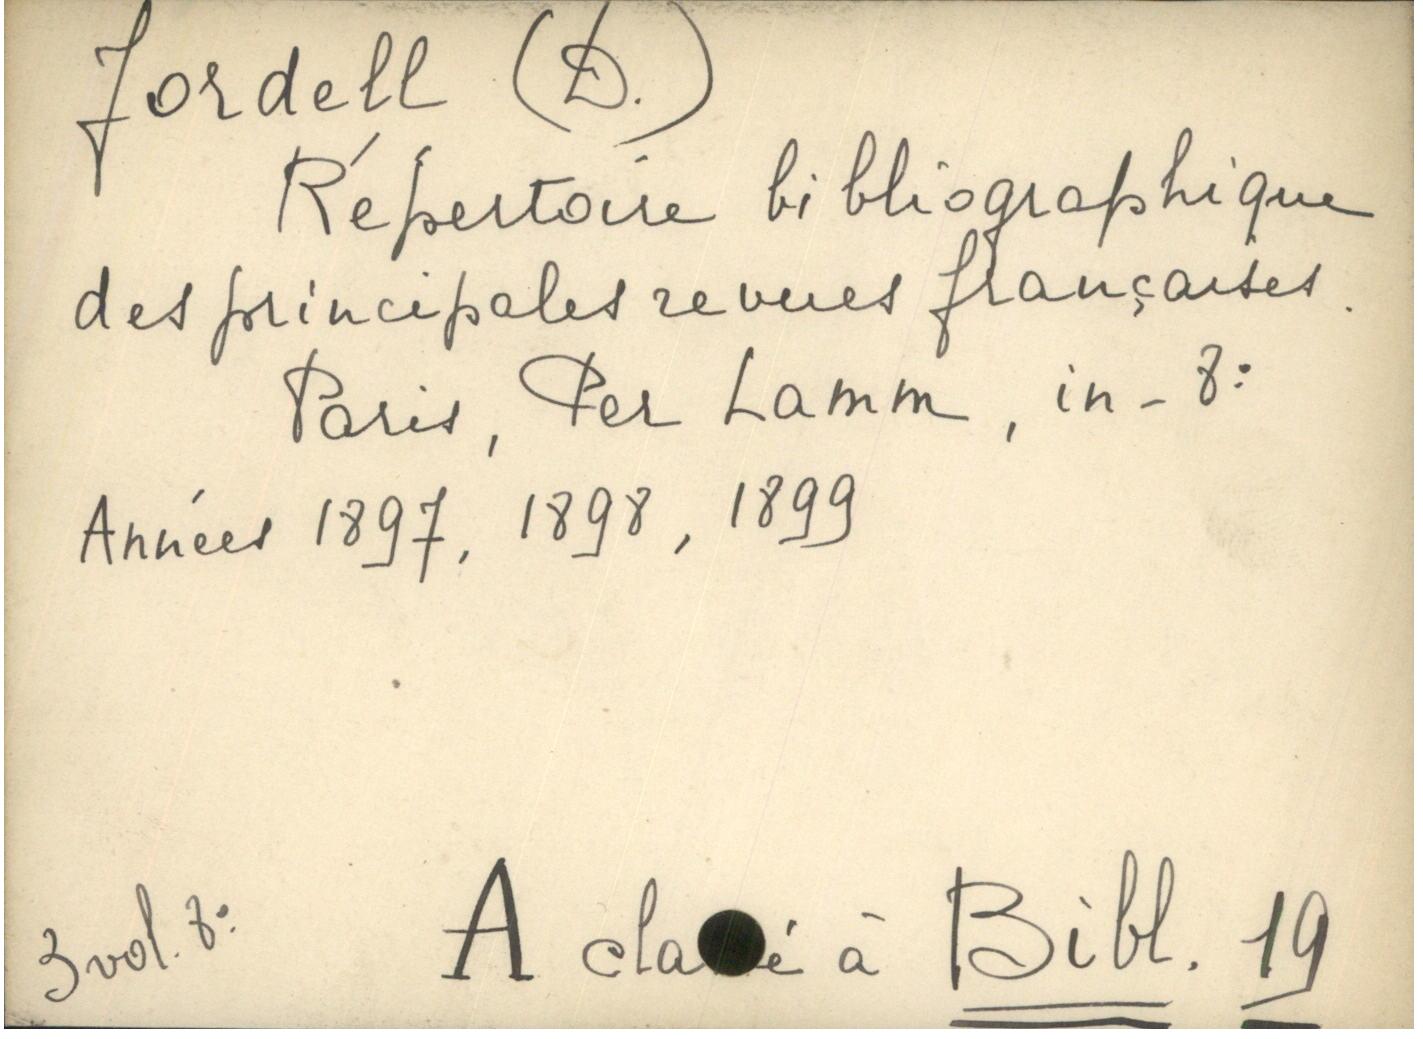 Jordell (D.)
Répertoire bibliographique
des principales revues françaises.
Paris, Per Lamm, in-8°
Années 1897, 1898, 1899
3 vol. 8° A à Bibl. 19